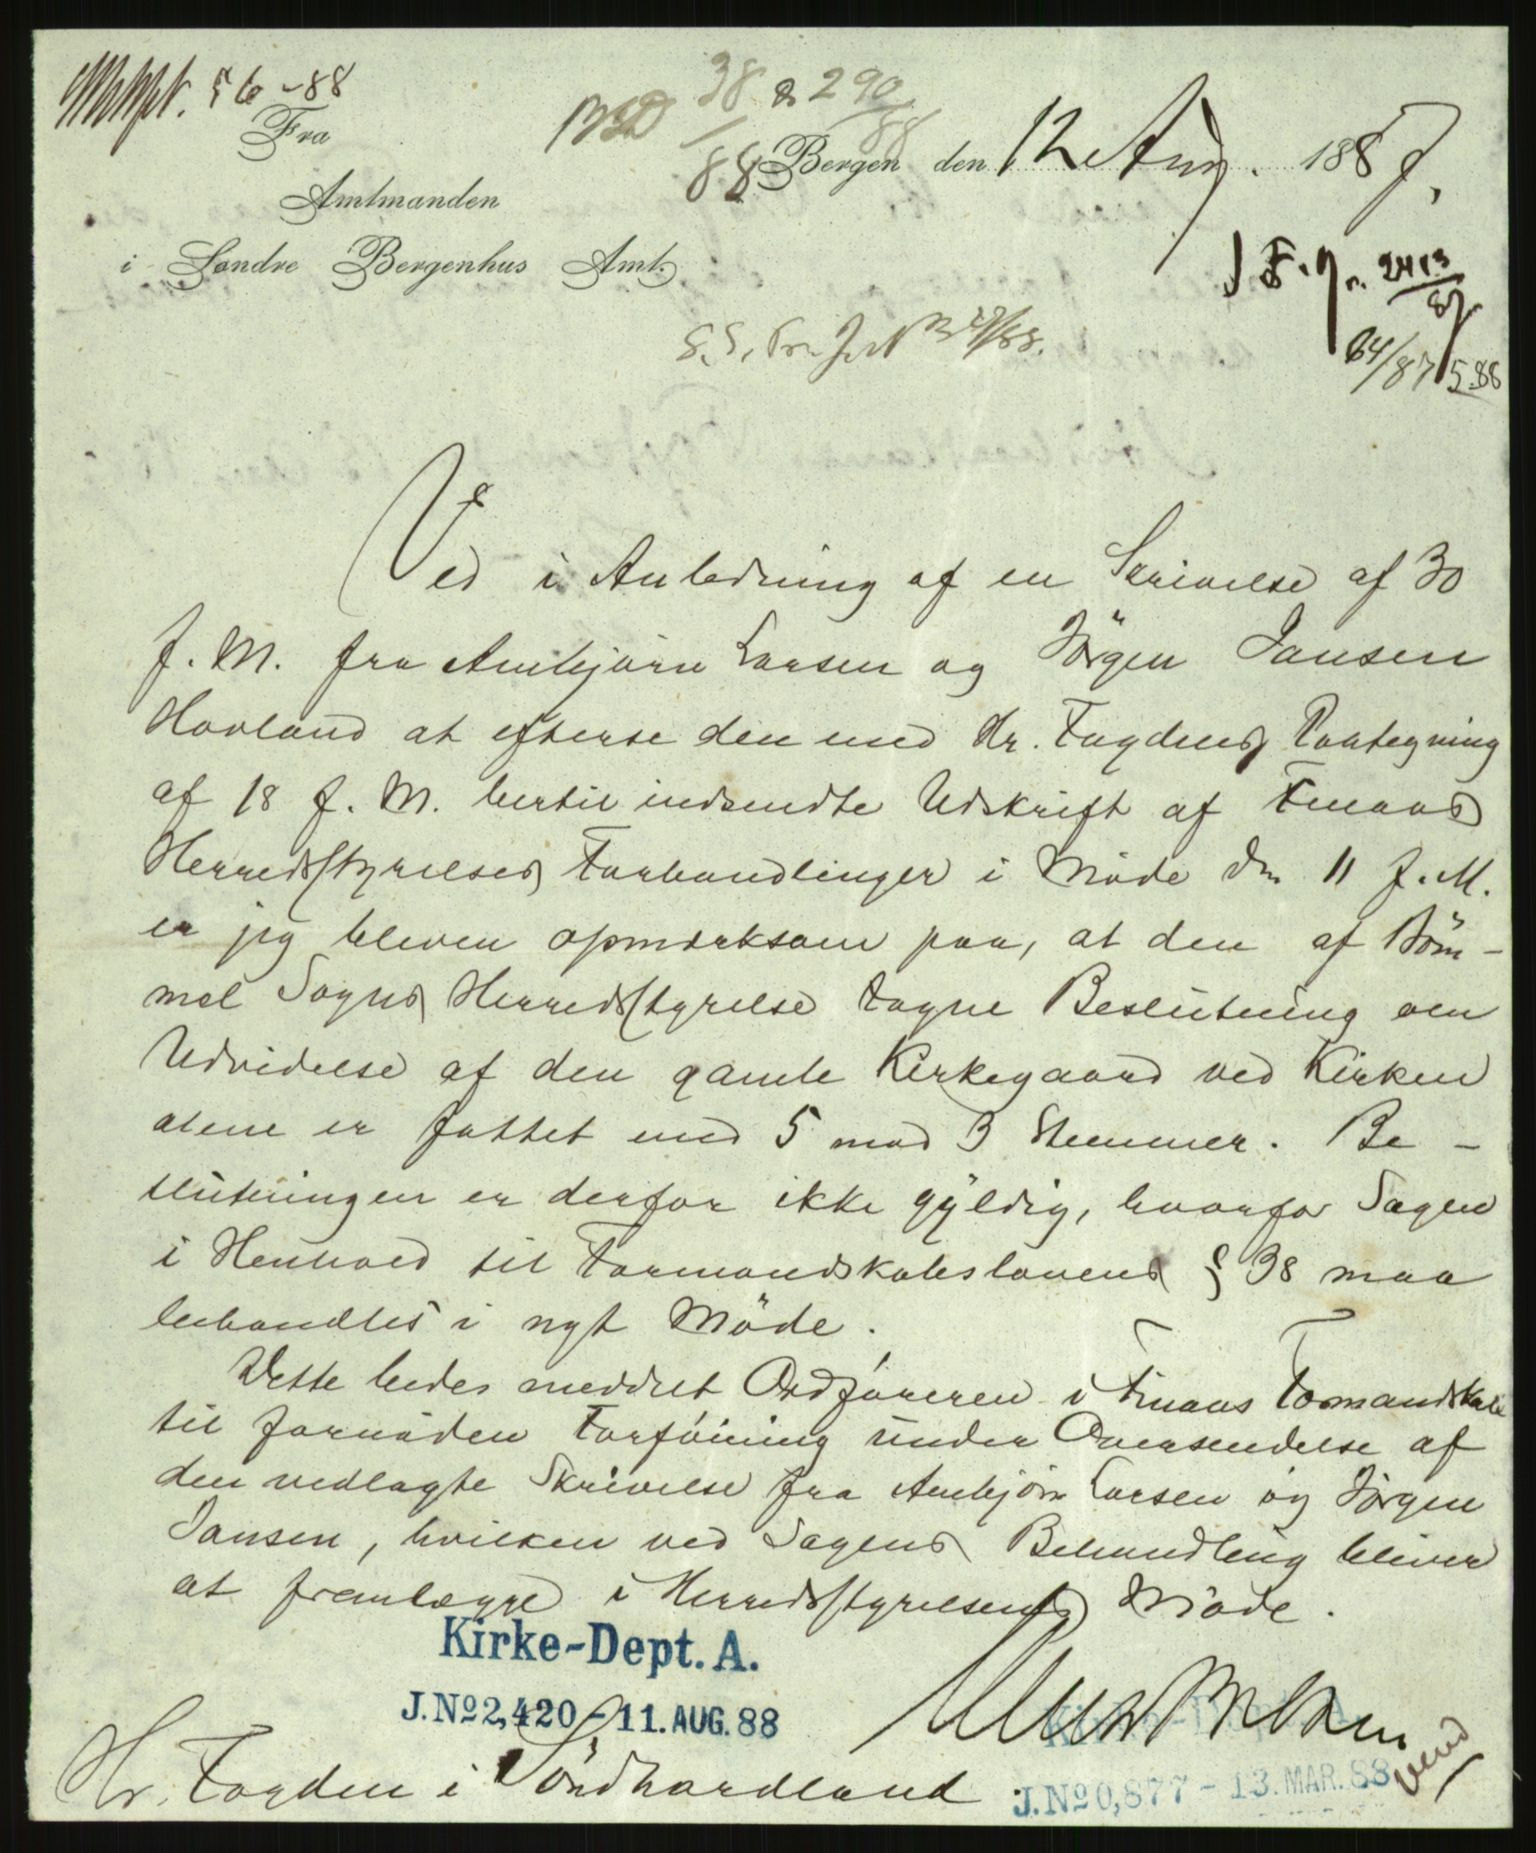 56-88
38 & 290
88 88
Fra
Bergen den 12 Aug. 1887,
Amtmanden
i Søndre Bergenhus Amt.
J. No. 2413
87
64/87 5.88
Ved i Anledning af en Skrivelse af 30
f. M. fra Ambjørn Larsen og Jørgen Jansen
Hovland at efterse den med Hr. Fogdens Paategning
af 18 f. M. hertil indsendte Udskrift af Finaas
Herredsstyrelses Forhandlinger i Møde den 11 f. M.
er jeg bleven opmærksom paa, at den af Bøm-
mel Sogns Herredsstyrelse tagne Beslutning om
Udvidelse af den gamle Kirkegaard ved Kirken
alene er fattet med 5 mod 3 Stemmer. Be-
slutningen er derfor ikke gyldig, hvorfor Sagen
i Henhold til Formandskabslovens § 38 maa
behandles i nyt Møde.
Dette bedes meddelt Ordføreren i Finaas Formandskab
til fornøden Forføining under Oversendelse af
den vedlagte Skrivelse fra Ambjørn Larsen og Jørgen
Jansen, hvilken ved Sagens Behandling bliver
at fremlægge i Herredsstyrelsens Møde.
Kirke-Dept. A.
J. No 2,420 - 11. AUG. 88
Hr. Fogden i Søndhordland
J. No 0,877 - 13. MAR. 88
vend